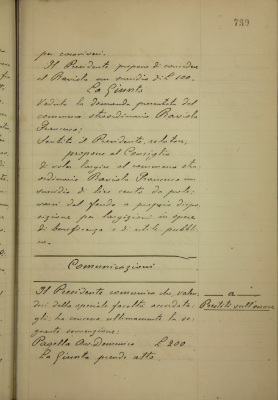 739
per concorrervi.
Il Presidente propone di concedere
al Raviola un sussidio di £ 100.
La Giunta
Veduta la domanda presentata dal
commesso straordinario Raviola
Francesco;
Sentito il Presidente, relatore,
propone al Consiglio
di voler largire al commesso stra-
ordinario Raviola Francesco un
sussidio di lire cento da prele-
varsi dal fondo a propria dispo-
sizione per largizioni in opere
di beneficenza e di utilità pubbli-
ca.
Comunicazioni
Il Presidente comunica che, valen-
dosi della speciale facoltà accordata-
gli, ha concesso ultimamente la se-
guente sovvenzione:
Pagella Avv. Domenico £ 200
La Giunta prende atto.
a
Prestiti sull'onore